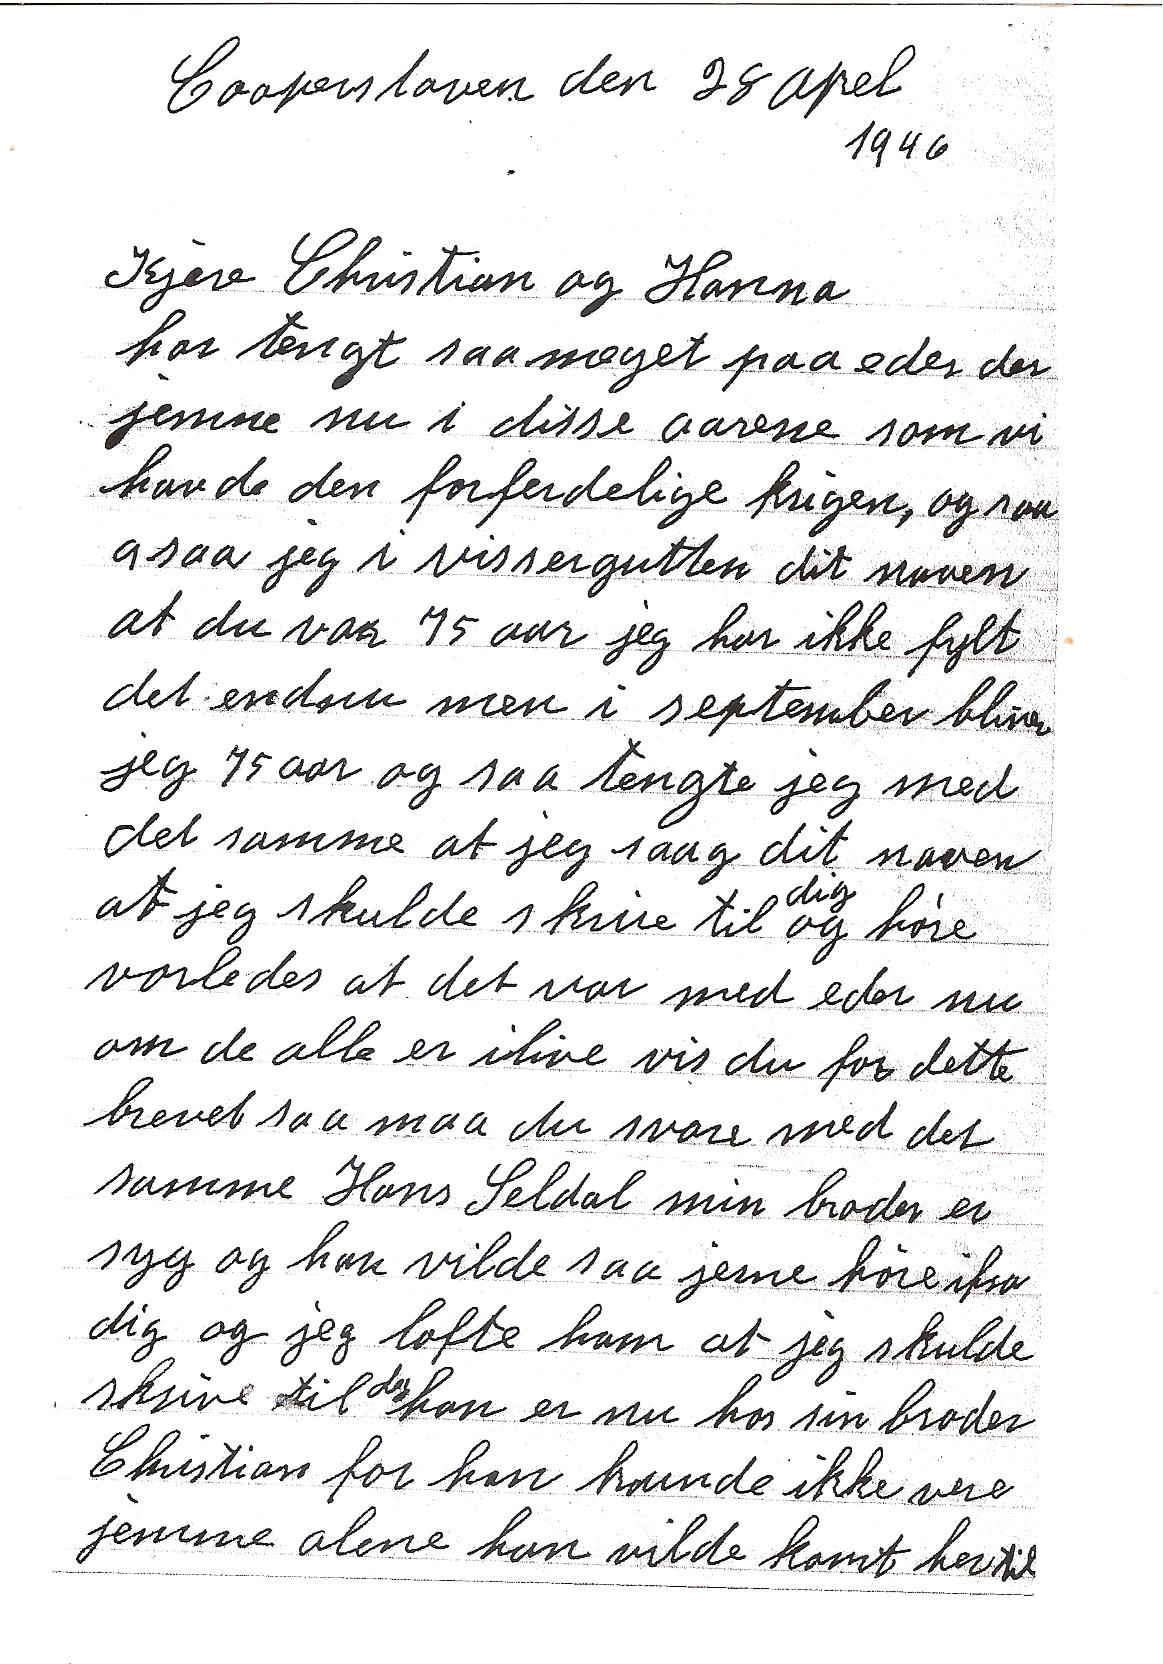 Cooperstoven den 28 apel
1946
Kjere Christian og Hanna
har tengt saa meget paa eder der
jemme nu i disse aarene som vi
havde den forferdelige krigen, og saa
asaa jeg i vissergutten dit naven
at du var 75 aar jeg har ikke fylt
det endnu men i september bliver
jeg 75 aar og saa tengte jeg med
det samme at jeg saag dit naven
at jeg skulde skrive til dig og høre
vorledes at det var med eder nu
om de alle er ilive vis du for dette
brevet saa maa du svare med det
samme Hans Seldal min broder er
syg og han vilde saa jerne høre ifra
dig og jeg lofte ham at jeg skulde
skrive til dig han er nu hos sin broder
Christian for han kunde ikke vere
jemme alene han vilde komt her til